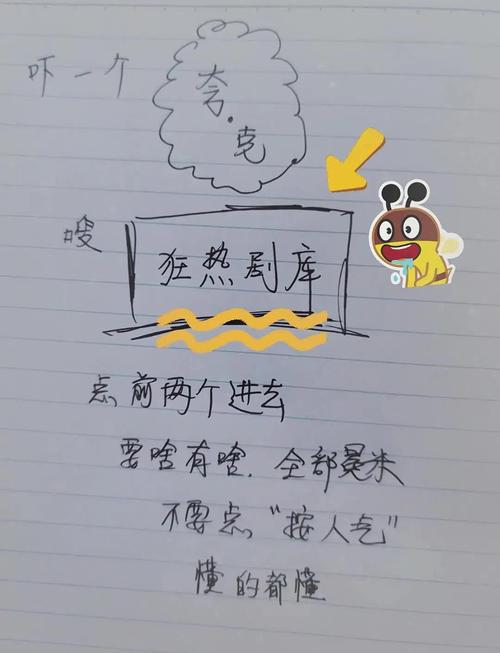 吓一个
夸.克
嗖
狂热剧库
点前两个进去
要啥有啥.全部冕米
不要点“按人气”
懂的都懂